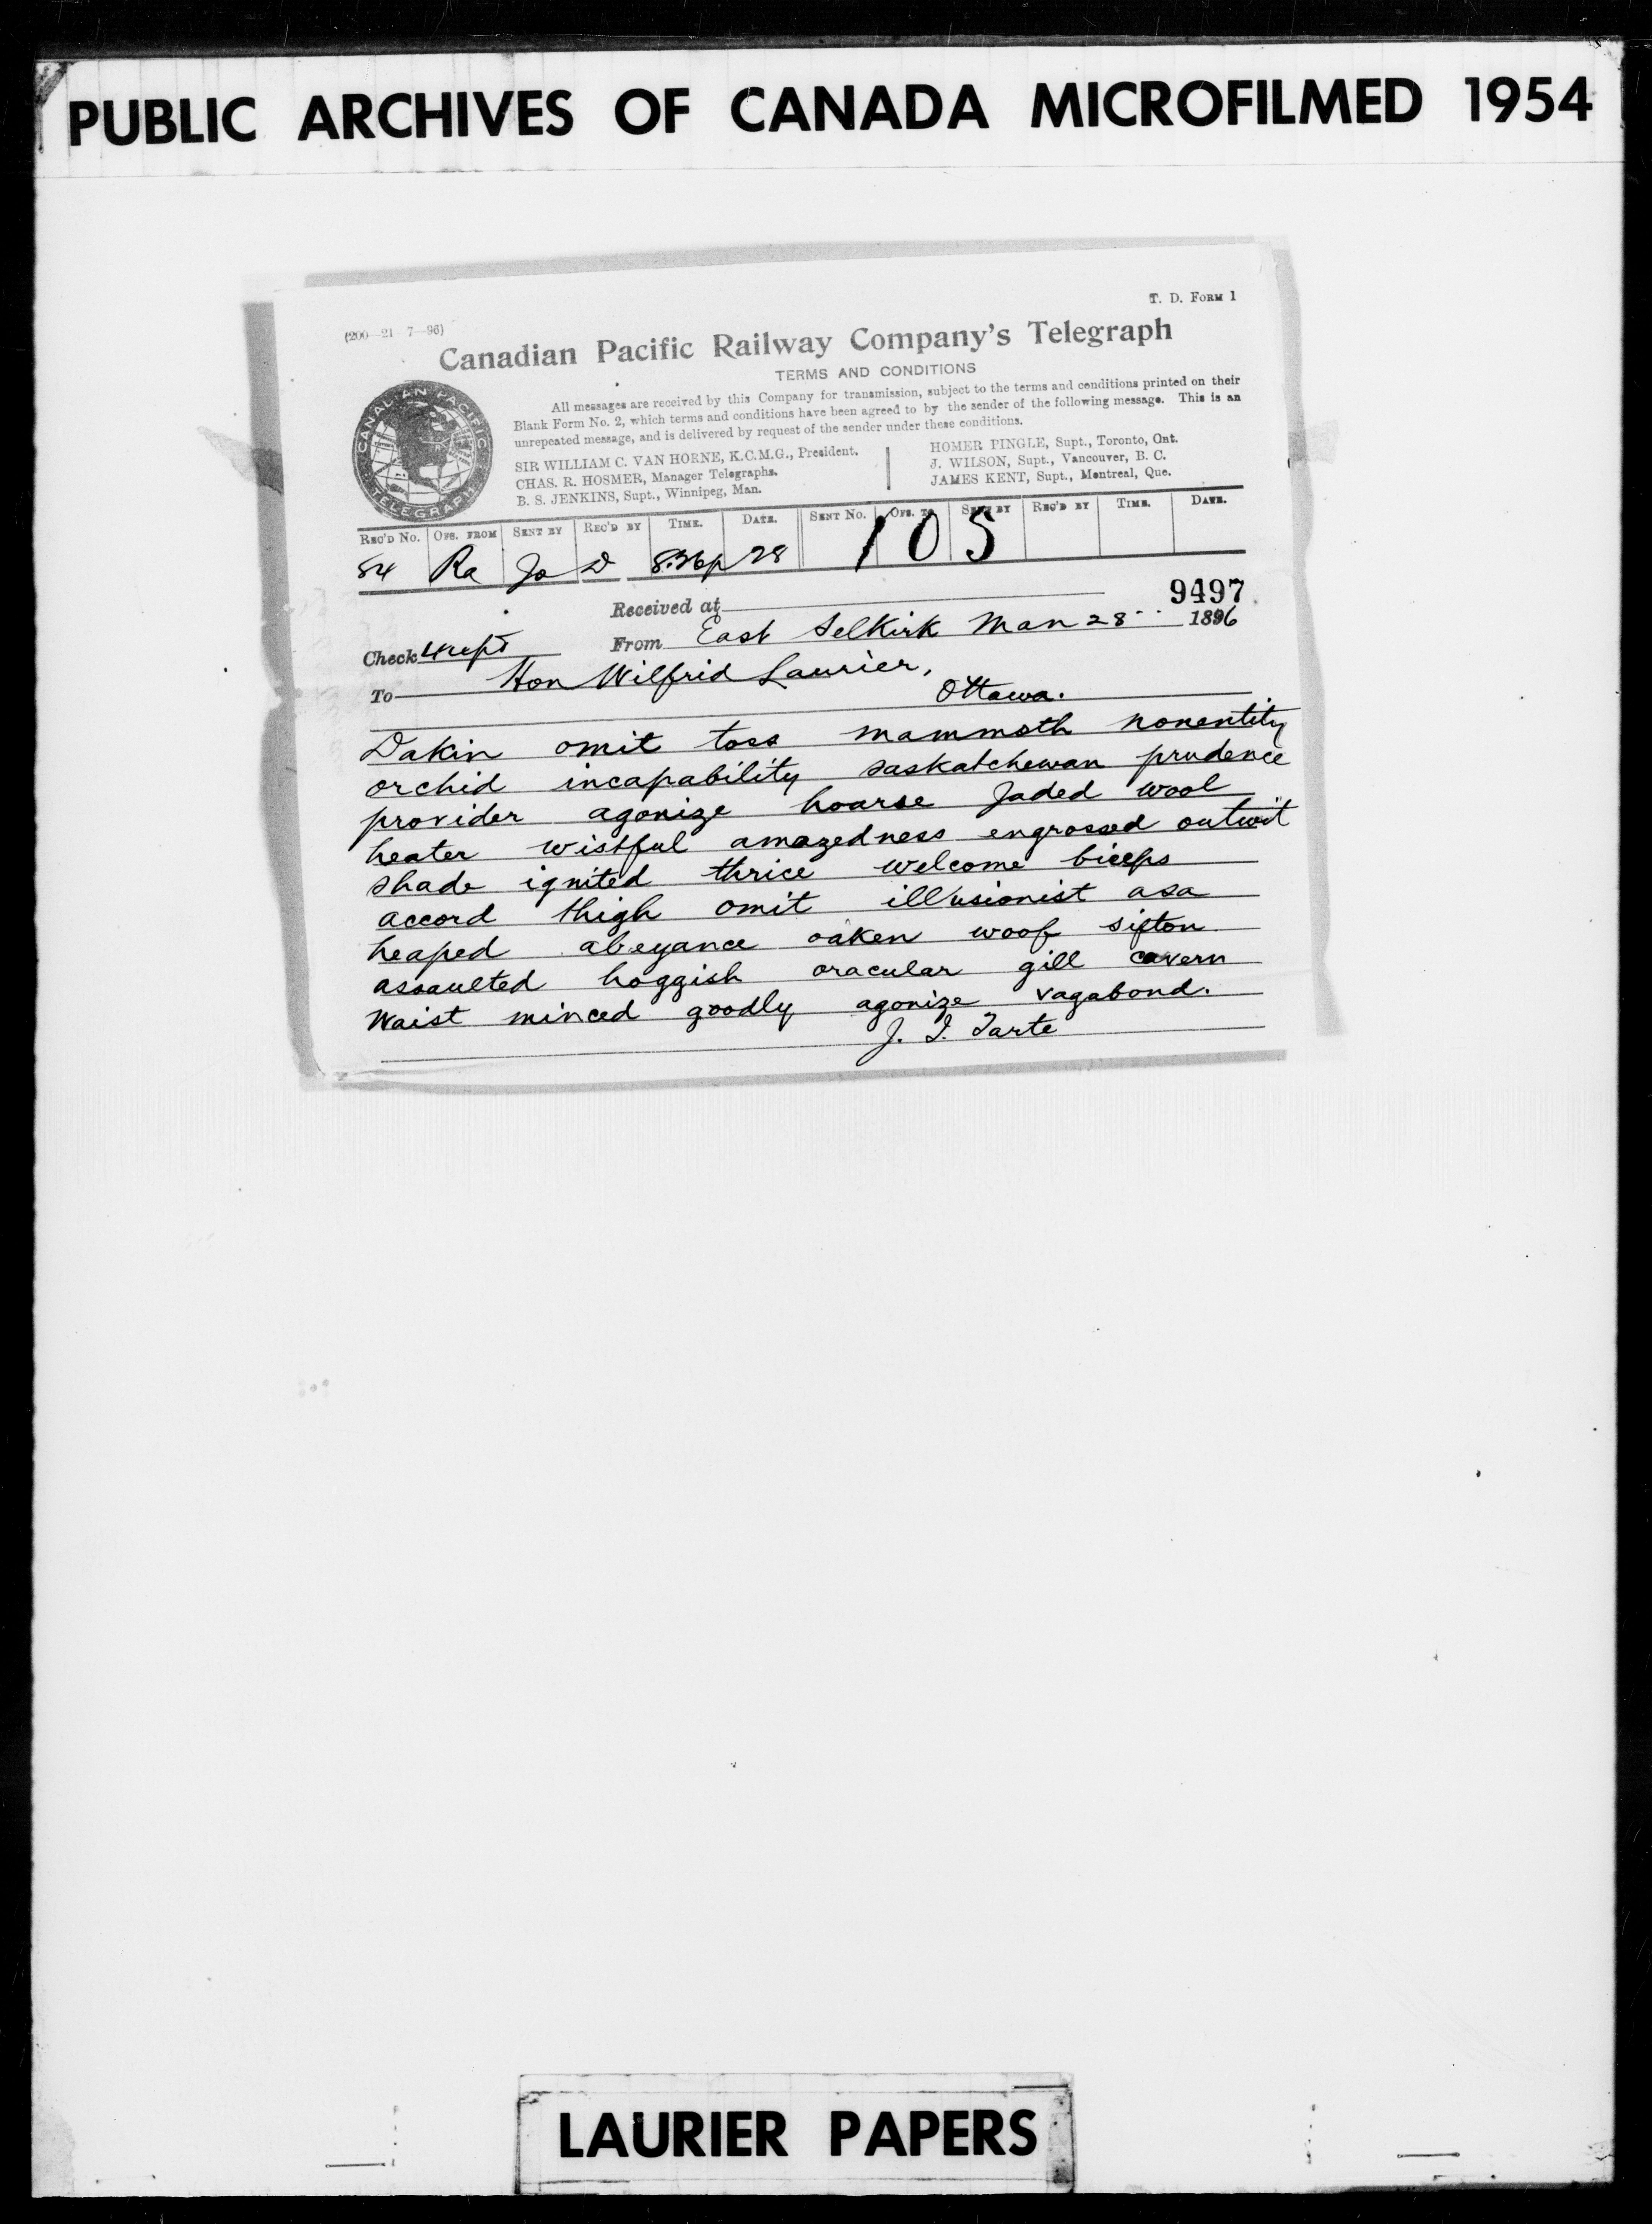 PUBLIC ARCHIVES OF CANADA MICROFILMED 1954
T. D. FORM 1
(200—21—7—96)
Canadian Pacific Railway Company's Telegraph
TERMS AND CONDITIONS
All messages are received by this Company for transmission, subject to the terms and conditions printed on their
Blank Form No. 2, which terms and conditions have been agreed to by the sender of the following message. This is an
unrepeated message, and is delivered by request of the sender under these conditions.
CANADIAN PACIFIC TELEGRAPH
SIR WILLIAM C. VAN HORNE, K.C.M.G., President.
CHAS. R. HOSMER, Manager Telegraphs.
B. S. JENKINS, Supt., Winnipeg, Man.
HOMER PINGLE, Supt., Toronto, Ont.
J. WILSON, Supt., Vancouver, B. C.
JAMES KENT, Supt., Montreal, Que.
REC'D No. OFS. FROM SENT BY REC'D BY TIME. DATE. SENT No. OFS. TO SENT BY REC'D BY TIME. DATE.
84 Ra Jo D 8:36p 28 105
9497
Received at
From East Selkirk Man 28 1896
Check
To Hon Wilfrid Laurier,
Ottawa.
Dakin omit toss mammoth nonentity
orchid incapability saskatchewan prudence
provider agonize hoarse jaded wool
heater wistful amazedness engrossed outwit
shade ignited thrice welcome biceps
accord thigh omit illusionist asa
heaped abeyance oaken woof sifton
assaulted hoggish oracular gill cavern
Waist minced goodly agonize vagabond.
J. I. Tarte
LAURIER PAPERS